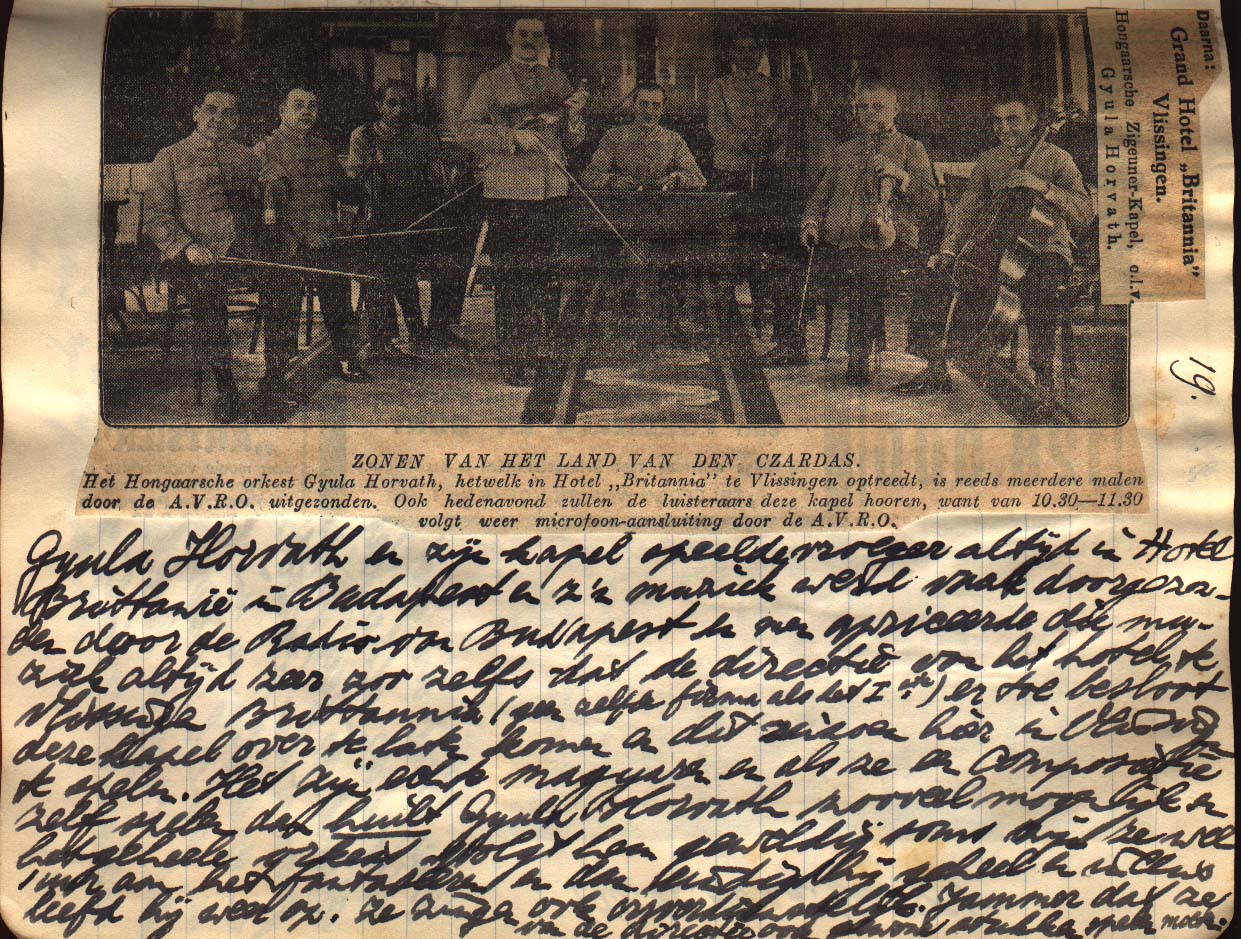 Daarna:
Grand Hotel „Britannia”
Vlissingen.
Hongaarsche Zigeuner-Kapel, o.l.v.
Gyula Horvath.
19.
ZONEN VAN HET LAND VAN DEN CZARDAS.
Het Hongaarsche orkest Gyula Horvath, hetwelk in Hotel „Britannia” te Vlissingen optreedt, is reeds meerdere malen
door de A.V.R.O. uitgezonden. Ook hedenavond zullen de luisteraars deze kapel hooren, want van 10.30—11.30
volgt weer microfoon-aansluiting door de A.V.R.O.
Gyula Horvath en zijn kapel speelde vroeger altijd in Hotel
Brittanië in Budapest en z'n muziek werd vaak doorgezon-
den door de Radio van Budapest en men apriceerde die mu-
ziek altijd zeer zoo zelfs dat de directie van het hotel te
Vlissingen Brittannia (een zelfde firma als het I ste) er toe besloot
deze Kapel over te laten komen en dit seizoen hier in Vlissingen
te spelen. Het zijn echte magyaren en als ze een Compositie
zelf spelen dan huilt Gyula Horvath zooveel mogelijk en
het geheele orkest volgt hem geweldig soms
aan het fantaseeren en dan hij in eens
leeft hij weer op. Ze zingen ook Jammer dat ze
van de directie ook stukken spelen moeten.